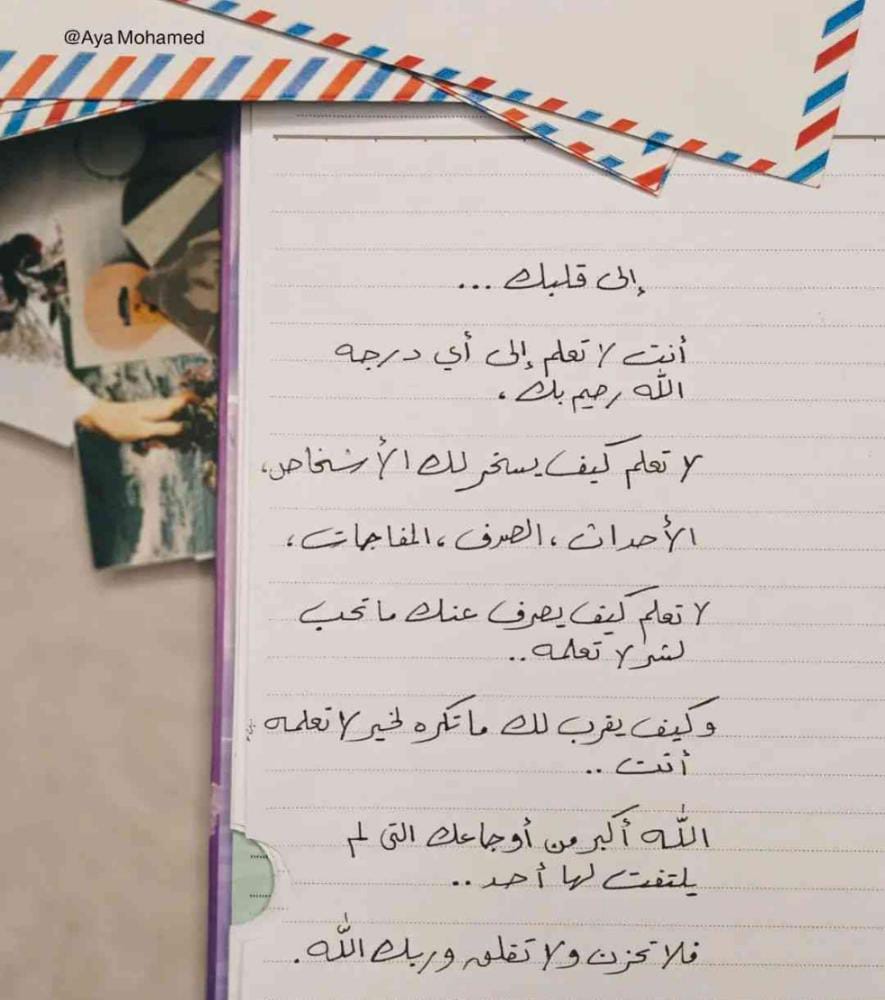 @Aya Mohamed
إلى قلبك ...
أنت لا تعلم إلى أي درجه
الله رحيم بك،
لا تعلم كيف يسخر لك الأشخاص،
الأحداث، الصدف، المفاجات،
لا تعلم كيف يصرف عنك ما تحب
لشر لا تعلمه ..
وكيف يقرب لك ما تكره لخير لا تعلمه
أنت ..
الله أكبر من أوجاعك التى لم
يلتفت لها أحد ..
فلا تحزن ولا تقلق وربك الله.